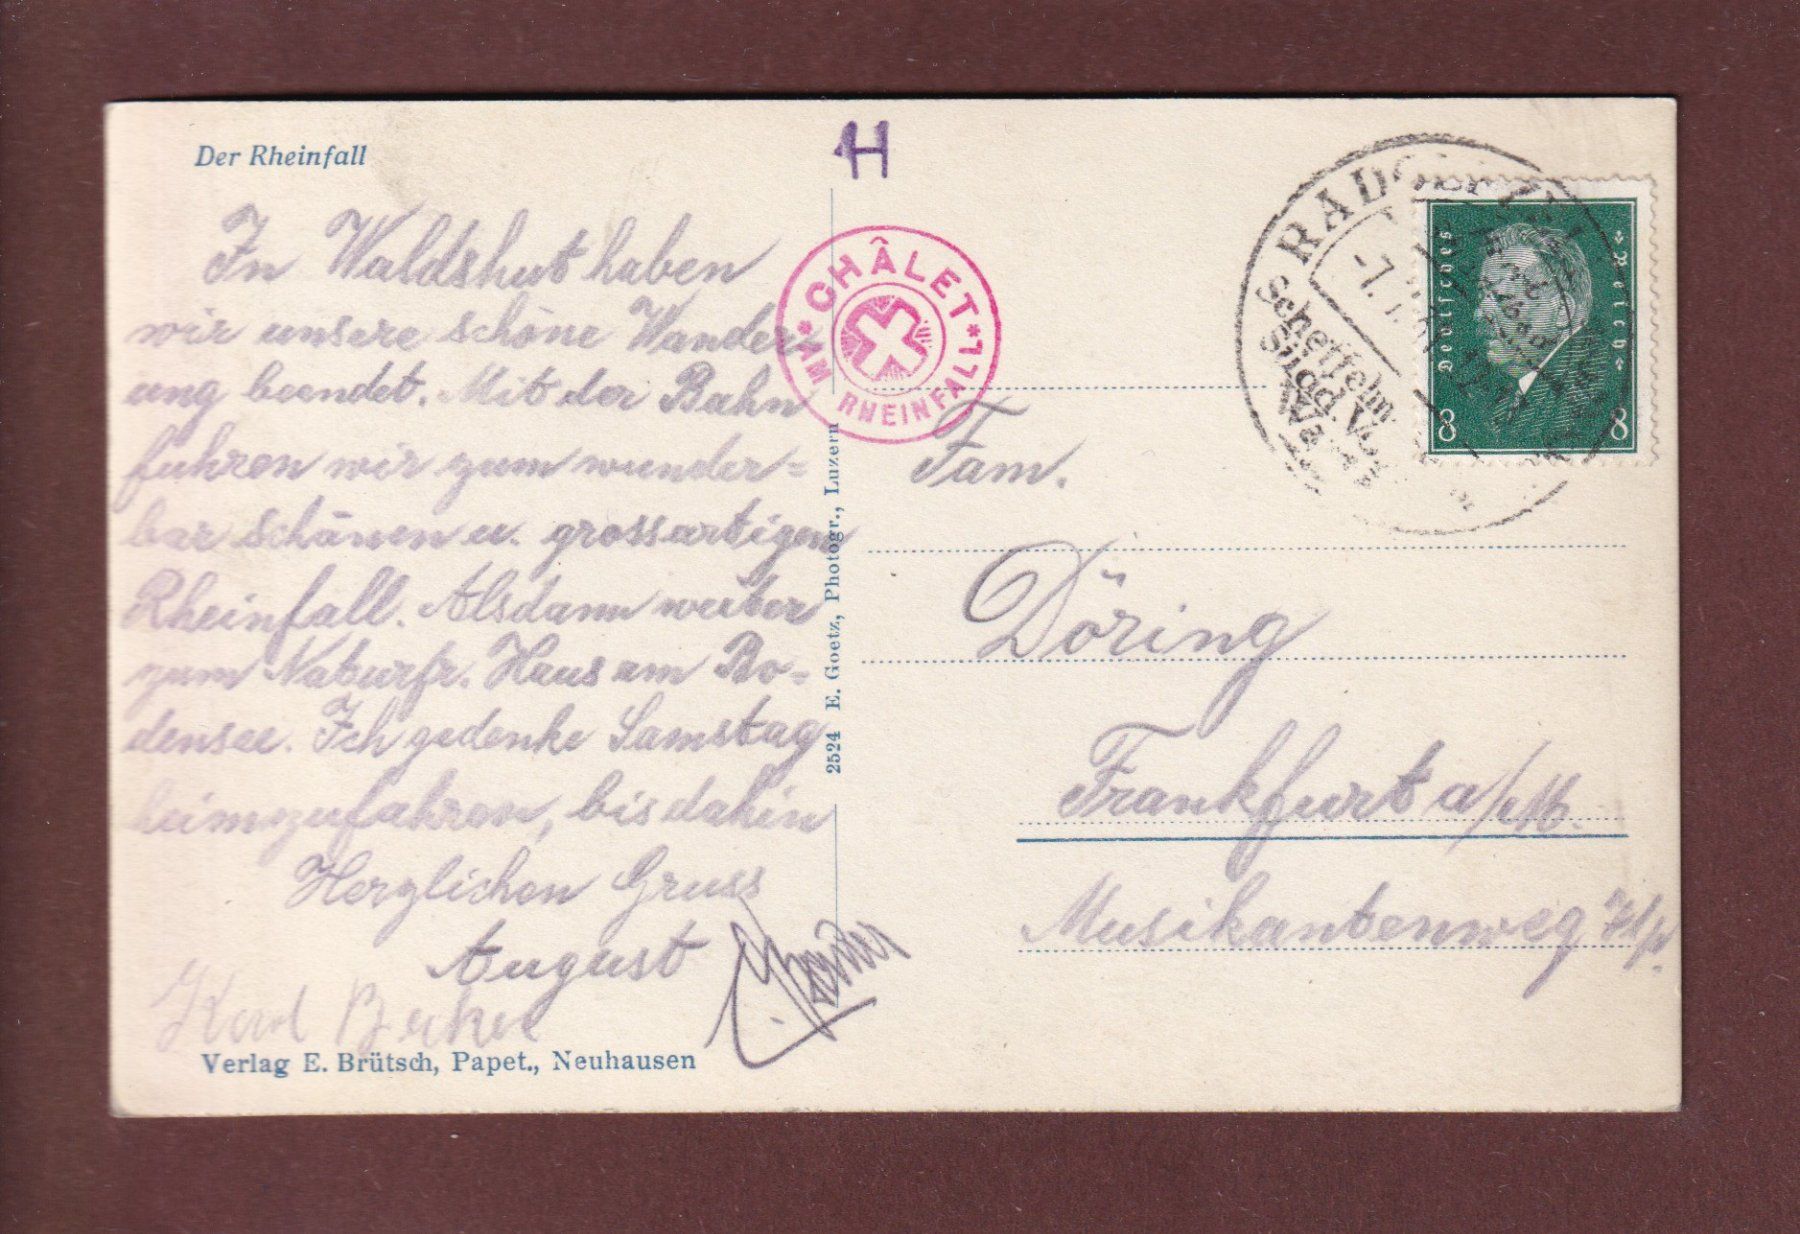 Der Rheinfall
H
In Waldshut haben
wir unsere schöne Wander-
ung beendet. Mit der Bahn
fuhren wir zum wunder=
bar schönen u. grossartigen
Rheinfall. Alsdann weiter
zum Naturfr. Haus am Bo-
densee. Ich gedenke Samstag
heimzufahren, bis dahin
Herzlichen Gruss
August
Karl Becker
Verlag E. Brütsch, Papet., Neuhausen
2524 E. Goetz, Photogr., Luzern
* CHÂLET *
AM RHEINFALL
RADOLFZELL
-7.
Scheffelm
Deutsches Reich
8 8
Fam.
Döring
Frankfurt a/M.
Musikantenweg